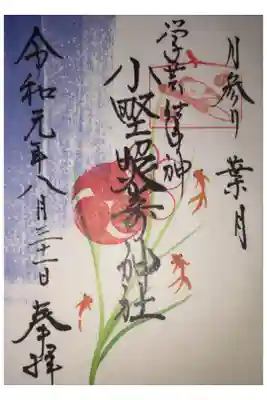 月参り 葉月
学芸
小野照崎神社
令和元年八月三十一日
奉拝